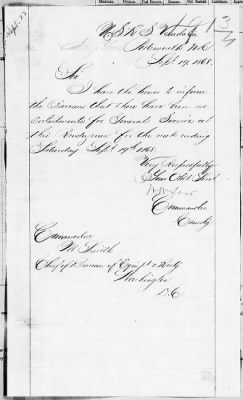 Sept. 19, 1868.
Sir
I have the honor to inform
the Bureau that there have been no
enlistments for General Service at
this Rendezvous for the week ending
Saturday Sept 19th 1868.
Very Respectfully
Your Obt. Servt
Commander
Comdg
Commodore
M. Smith
Chief of Bureau of Equipt & Rectg
Washington
D.C.